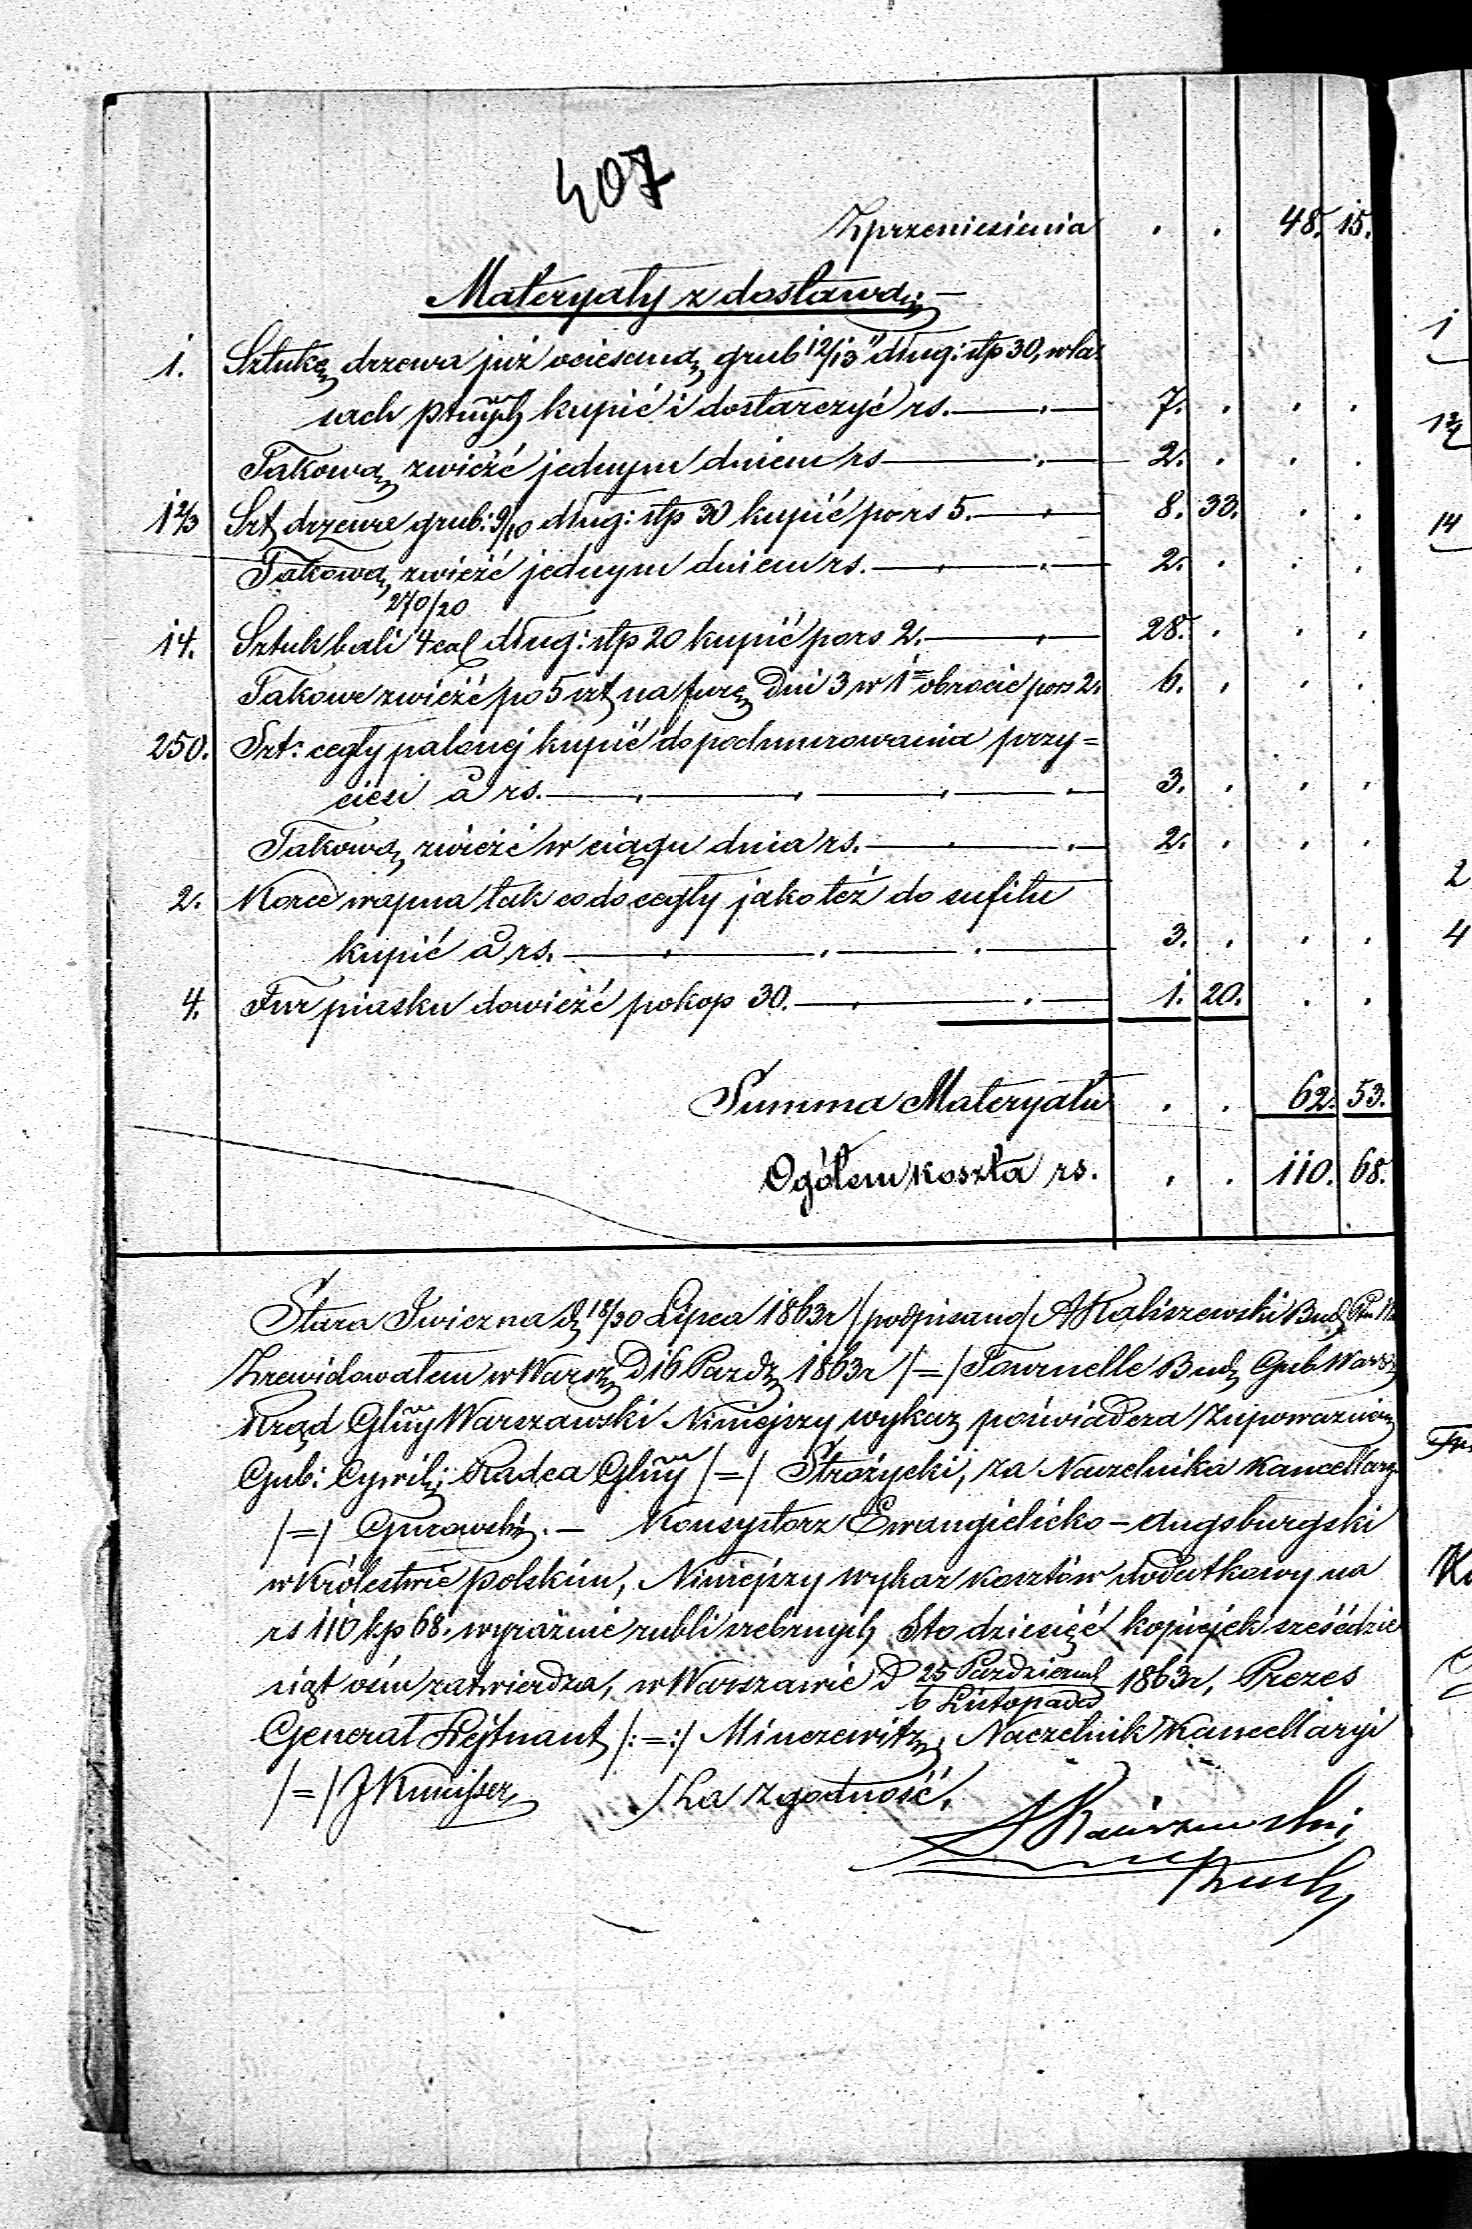 407
Z przeniesienia . . 48. 15.
Materyały z dostawą —
1. Sztukę drzewa już ociesaną grub 12/13" dług: stp 30, w la-
sach ptnych kupić i dostarczyć rs. 7. . . .
Takową zwieźć jednym dniem rs 2. . . .
1 2/3 Szt drzewa grub: 9/10 dług: stp 30 kupić po rs 5. 8. 33. . .
Takową zwieźć jednym dniem rs. 2. . . .
270/20
14. Sztuk bali 4 cal dług: stp 20 kupić po rs 2. 28. . . .
Takowe zwieźć po 5 szt na furę Dni 3 w 1m obrocie po rs 2. 6. . . .
250. Szt: cegły palonej kupić do podmurowania przy=
ciesi a rs. 3. . . .
Takową zwieźć w ciągu dnia rs. 2. . . .
2. Korce wapna tak co do cegły jako też do sufitu
kupić a rs. 3. . . .
4. Fur piasku dowieźć po kop 30. 1. 20. . .
Summa Materyału . . 62. 53.
Ogółem koszta rs. . . 110. 68.
Stara Iwiczna d 18/30 Lipca 1863r /podpisano/ A Kaliszewski Bud
Zrewidowałem w Warsz D 16 Paźdz 1863r /=/ Tournelle Bud Gub Warsz
Rząd Głny Warszawski Niniejszy wykaz poświadcza Z upoważnien
Gub: Cywil: Radca Głny /=/ Strożycki, za Naczelnika Kancellary
/=/ Gurowski. — Konsystorz Ewangielicko-Augsburgski
w Królestwie polskim, Niniejszy wykaz kosztów dodatkowy na
rs 110 kp 68. wyraźnie rubli srebrnych Sto dziesięć kopiejek sześćdzie
siąt ośm zatwierdza, w Warszawie D 25 Październ / 6 Listopada 1863r, Prezes
Generał Lejtnant /:=:/ Minczewitz, Naczelnik Kancellaryi
/=/ J Kunisser Za zgodność,
A Kaliszewski
Bud